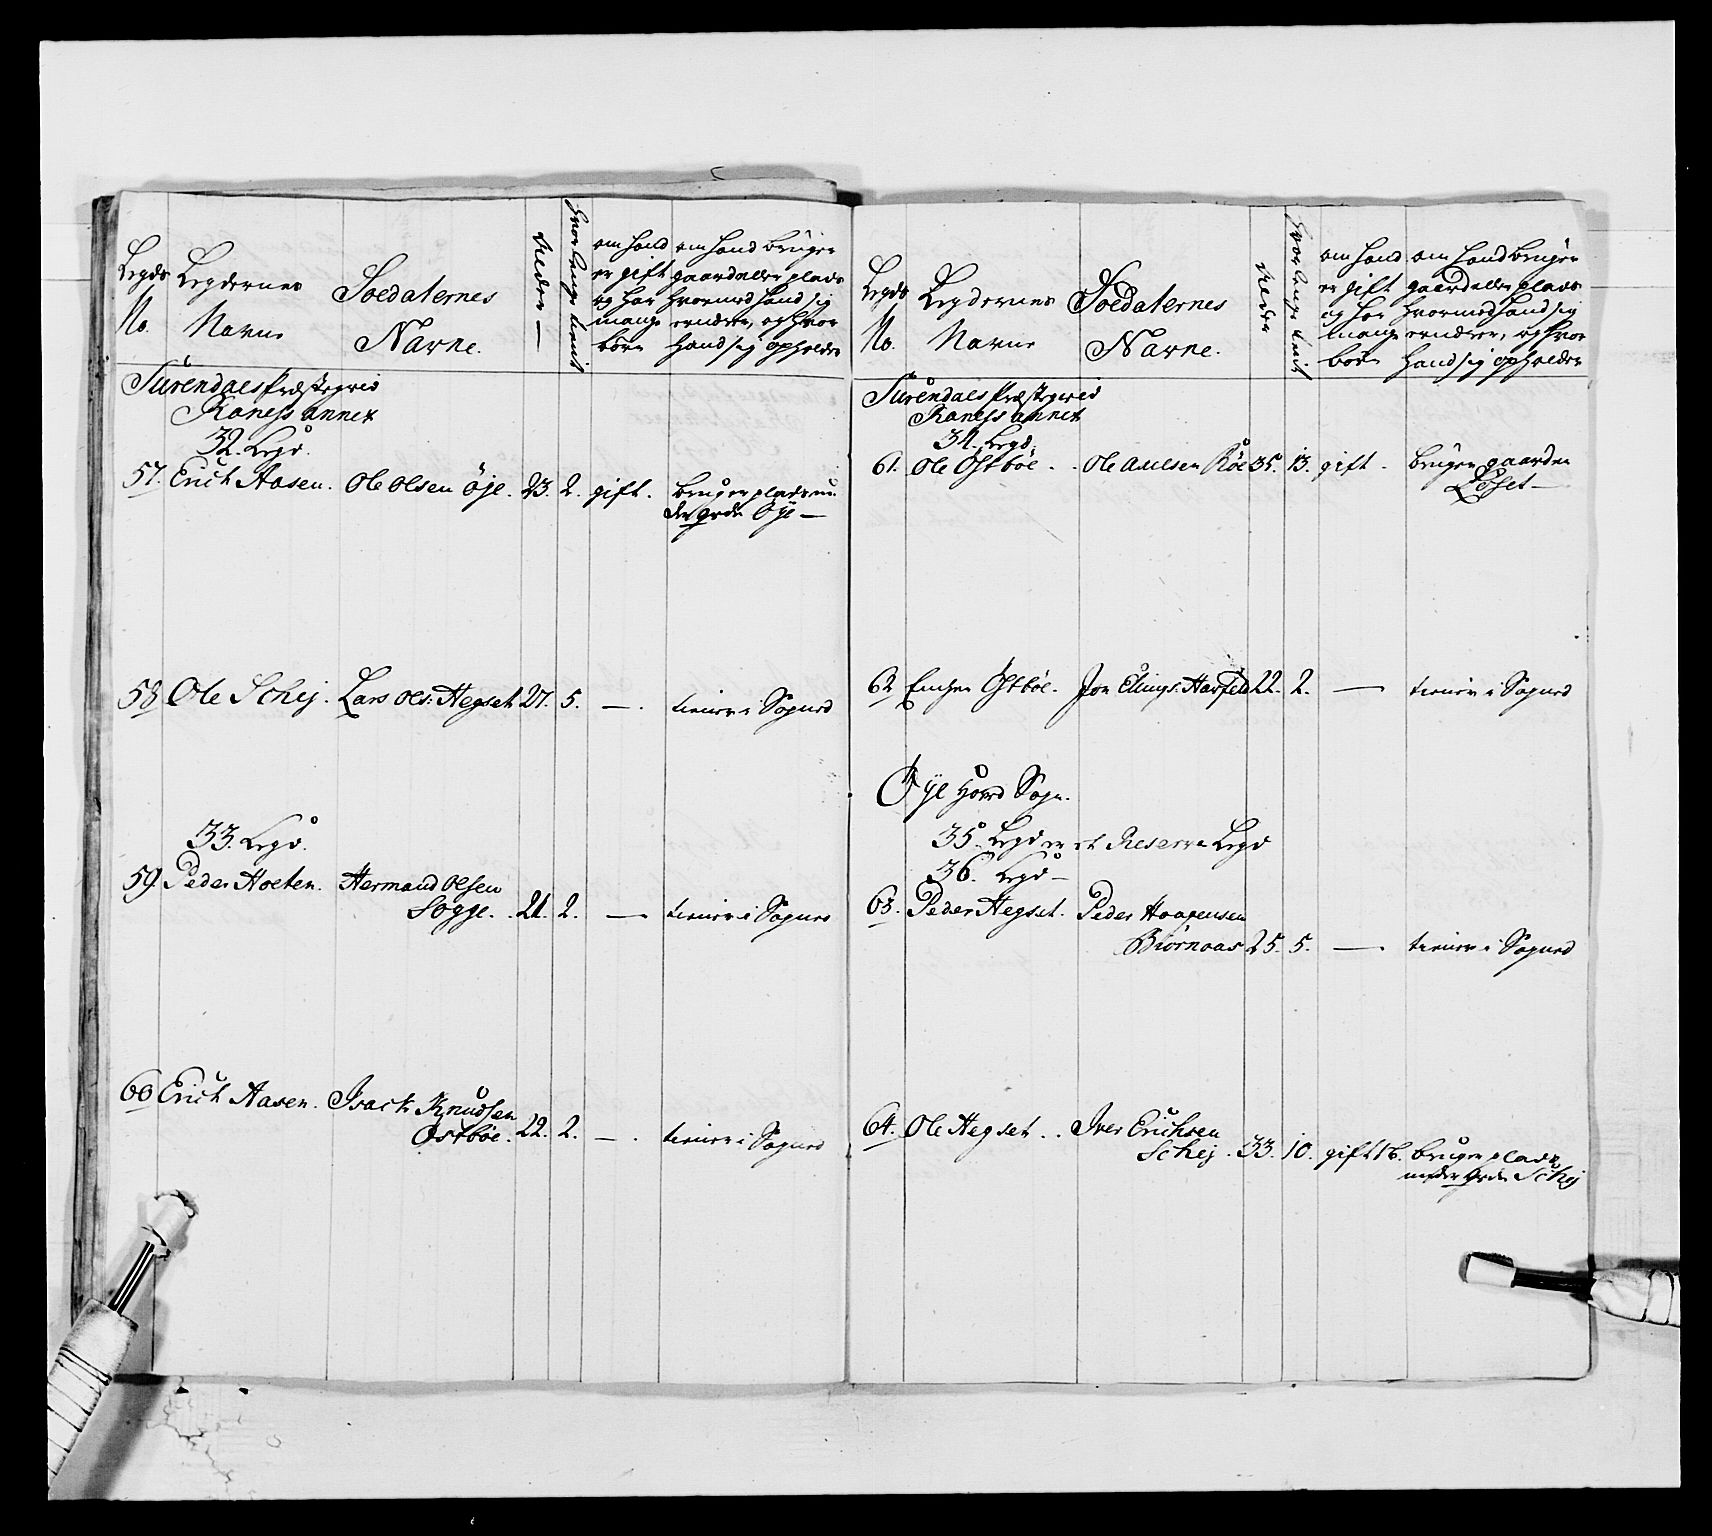 Legds Legdernes Soldaternes
No. Navne Navne.
Alder
hvor lenge tient
om hand er gift og har mange børn
om hand bruger gaard eller plads hvormed hand sig ernærer, og hvor hand sig opholder
Surendals Præstegield
Raness annex
32. Legd.
57. Erich Aasen. Ole Olsen Öye. 23. 2. gift. bruger plads un
der grdn Öye —
58 Ole Schej. Lars Ols: Hegset 27. 5. —. tiener i Sognet
33. Legd.
59 Peder Hoelen. Hermand Olsen
Sogge. 21. 2. — tiener i Sognet
60 Erich Aasen. Isach Knudsen
Ostböe. 22. 2. —. tiener i Sognet
Legds Legdernes Soldaternes
No. Navne Navne.
Alder
hvor lenge tient
om hand er gift og har mange børn
om hand bruger gaard eller plads hvormed hand sig ernærer, og hvor hand sig opholder
Surendals Præstegield
Raness annex
34. Legd.
61. Ole Östböe. Ole Olsen Röe 35. 13. gift. bruger gaarden
62 Östböe. Jon Elings: Harfeld 22. 2. — tiener i Sognet
Öye Hoved Sogn.
35. Legd er et Reserve Legd
36. Legd —
63. Peder Hegset. Peder Haagensen
Biörnaas 25. 5. —. tiener i Sognet
64. Ole Hegset. Iver Erichsen
Schej. 33. 10. gift 1 b. bruger plads
under grdn Schej